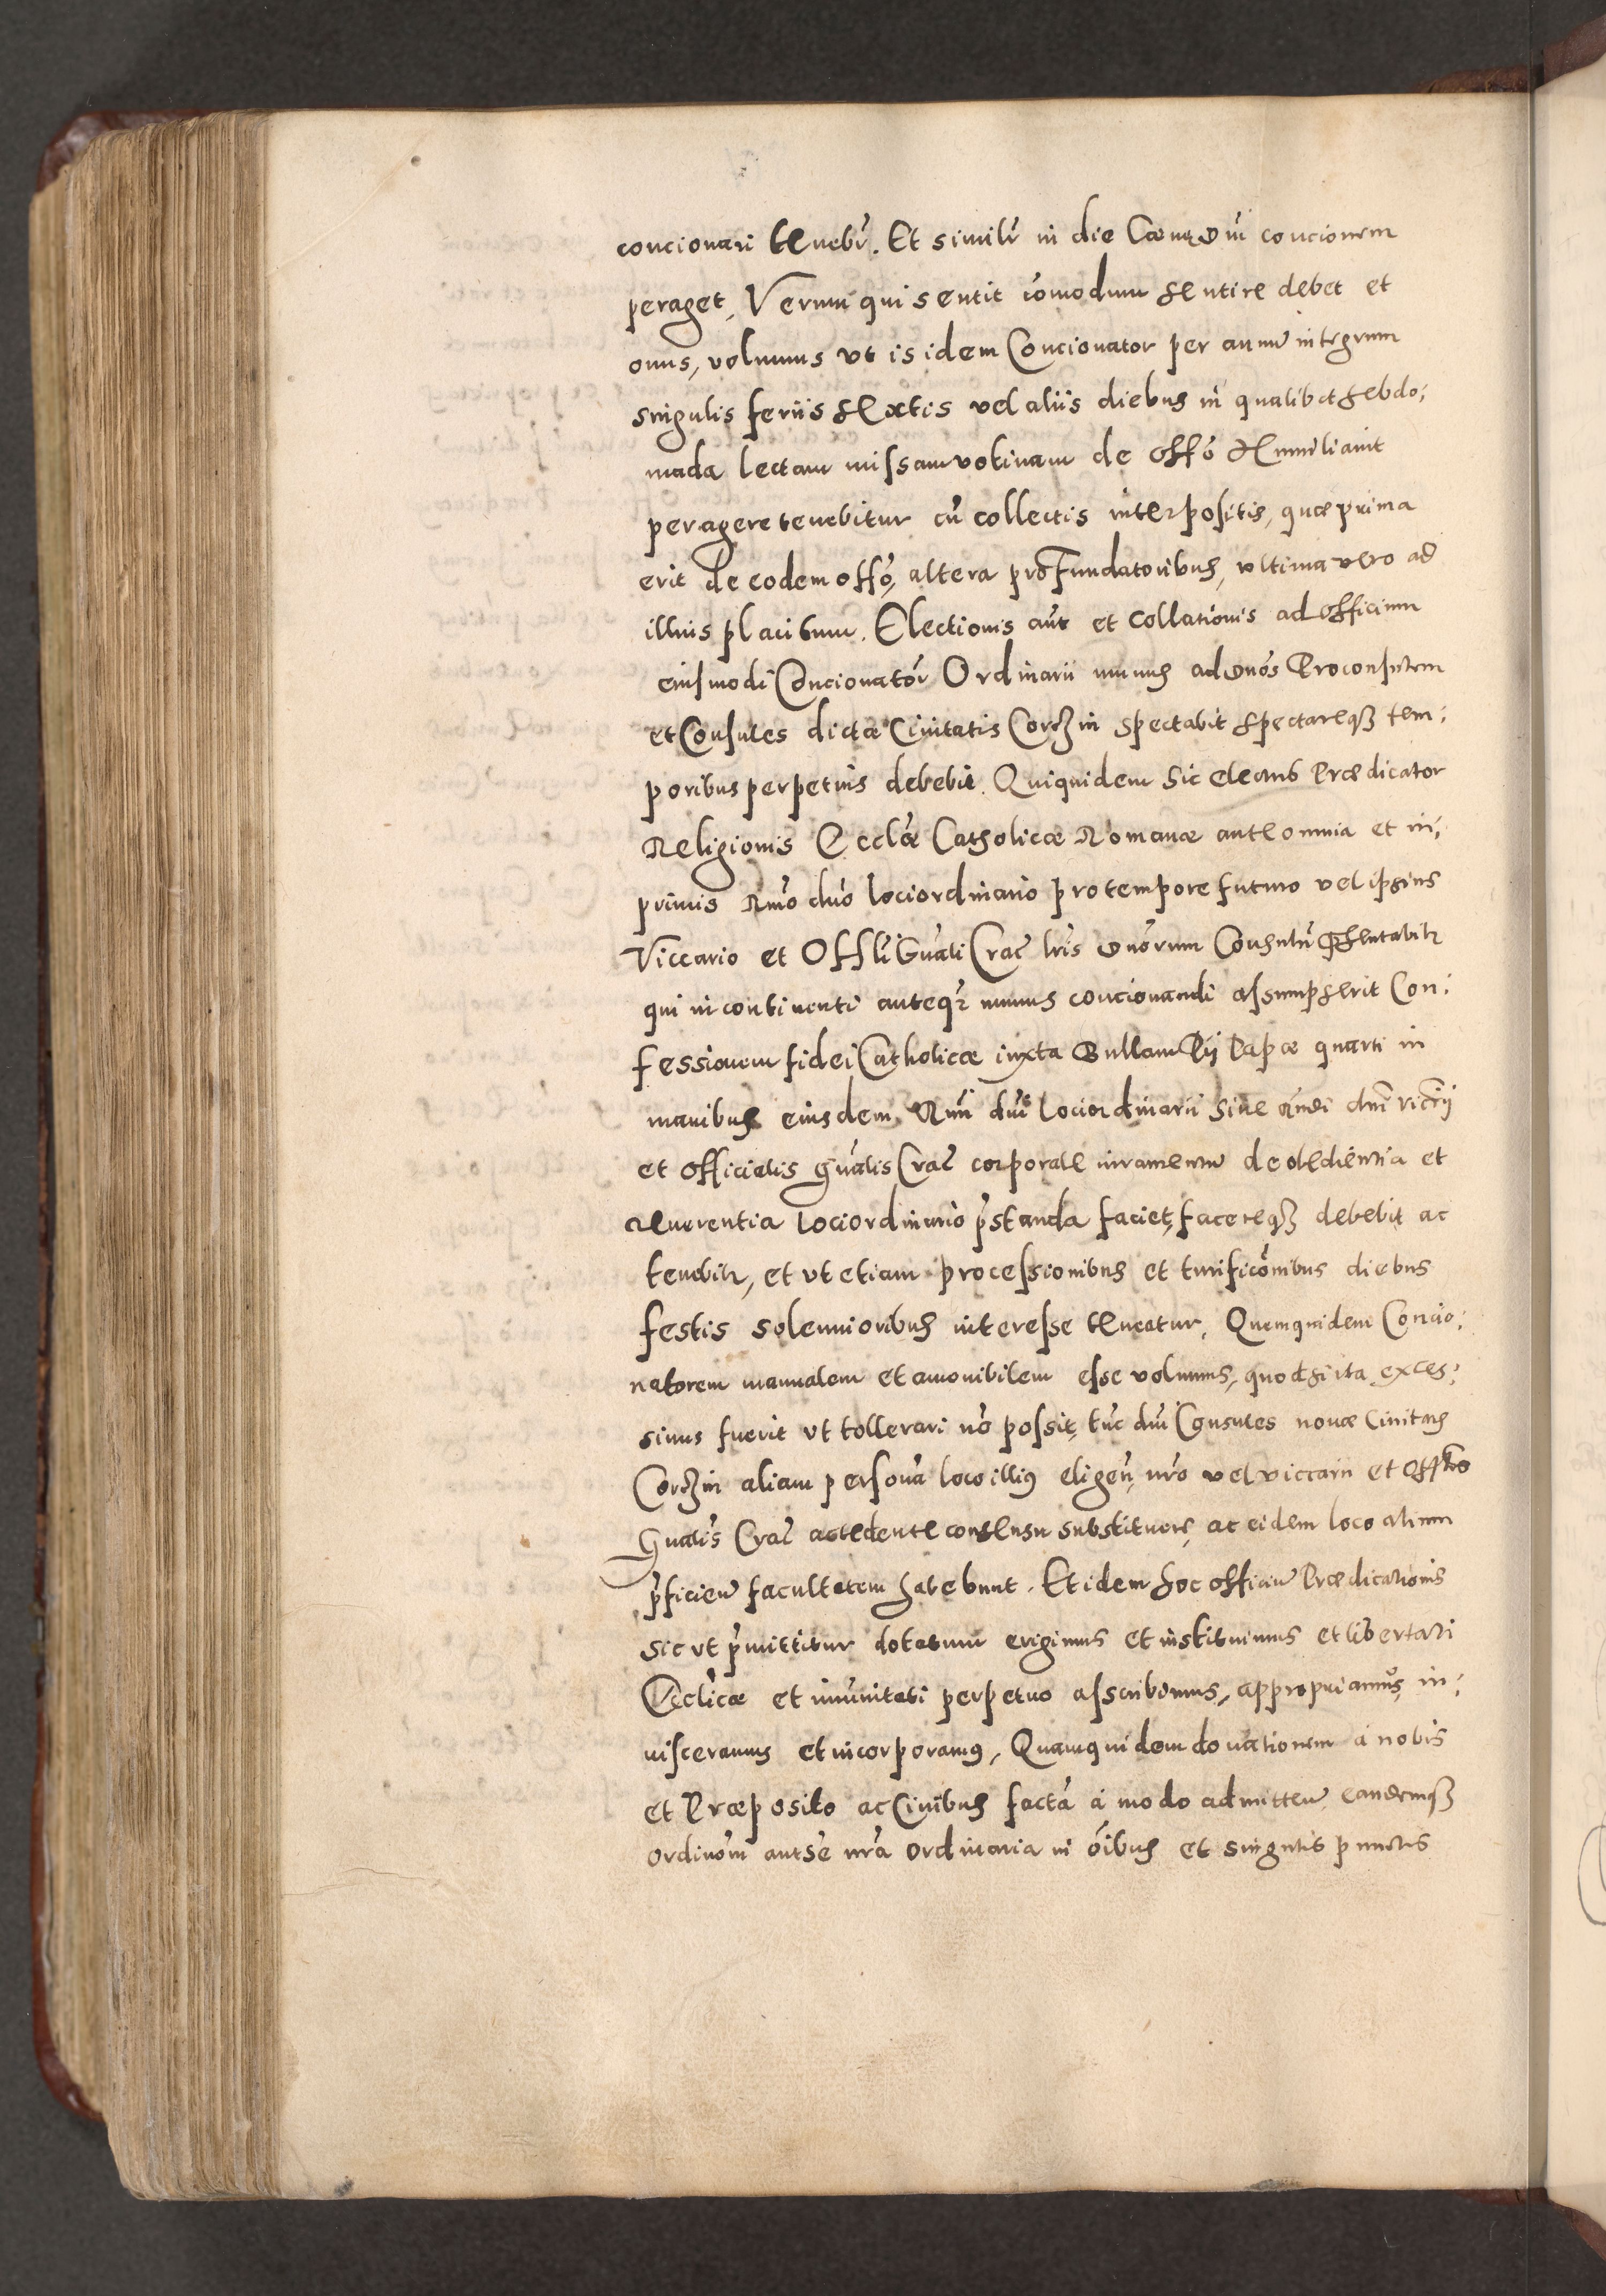 concionari tenebr̃. Et similr̃ in die Cœnæ Dnĩ concionem
peraget, Verum qui sentit cõmodum sentire debet et
onus, volumus vt is idem Concionator per annũ integrum
singulis feriis sextis vel aliis diebus in qualibet hebdo:
mada lectam missam votiuam de offõ
peragere tenebitur cũ collectis interpositis, quæ prima
erit de eodem offõ, altera pro Fundatoribus, vltima vero ad
illius placitum. Electionis aũt et Collationis ad officium
eiusmodi Concionator̃ Ordinarii munus ad Dnõs Proconsulem
et Consules dictæ Ciuitatis Corczin spectabit spectareqz tem:
poribus perpetuis debebit. Quiquidem sic electus Prædicator
Religionis Ecclæ̃ Catholicæ Romanæ ante omnia et in:
primis Rmõ dnõ lociordinario pro tempore futuro vel ipsius
Viccario et Offli Gnãli Crac̃ lrĩs Dnõrum Consulũ pñsentabitr
qui incontinenti anteqz̃ munus concionandi assumpserit Con:
fessionem fidei Catholicæ iuxta Bullam Pij Papæ quarti in
manibus eiusdem Rmi dnĩ Lociordinarii siue dnĩ vicrĩj
et officialis gnãlis Crac̃ corporale iuramentũ de obedientia et
reuerentia lociordinario p̃standa faciet, facereqz debebit ac
tenebitr, et vt etiam processionibus et turificõnibus diebus
festis solennioribus interesse teneatur. Quemquidem Concio:
natorem manualem et amouibilem esse volumus, quod si ita exces:
siuus fuerit vt tollerari nõ possit, tũc dnĩ Consules nouæ Ciuitatis
Corczin aliam personã loco illius eligen̄, nrõ vel viccarii et offlis
Gnãlis Crac̃ accedente consensu substituere, ac eidem loco alium
p̃ficien̄ facultatem habebunt. Et idem hoc officiũ Prædicationis
sic vt p̃mittitur dotatum erigimus et instituimus et libertati
Ecclicæ̃ et imũnitati perpetuo asscribimus, appropriamus, in:
uisceramus et incorporamus, Quamquidem donationem à nobis
et Præposito ac Ciuibus factã à modo admitten̄, eandemqz
ordinõm autẽ nrã ordinaria in õibus et singulis punctis